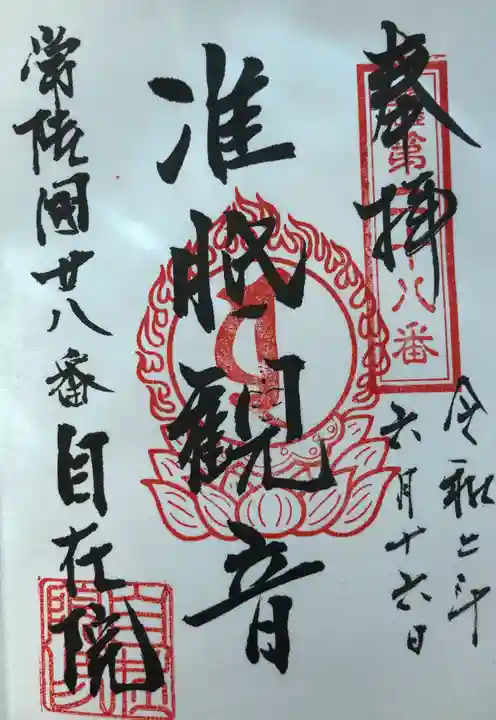 奉拝
第二十八番
令和二年
六月十六日
准胝観音
常陸国廿八番自在院